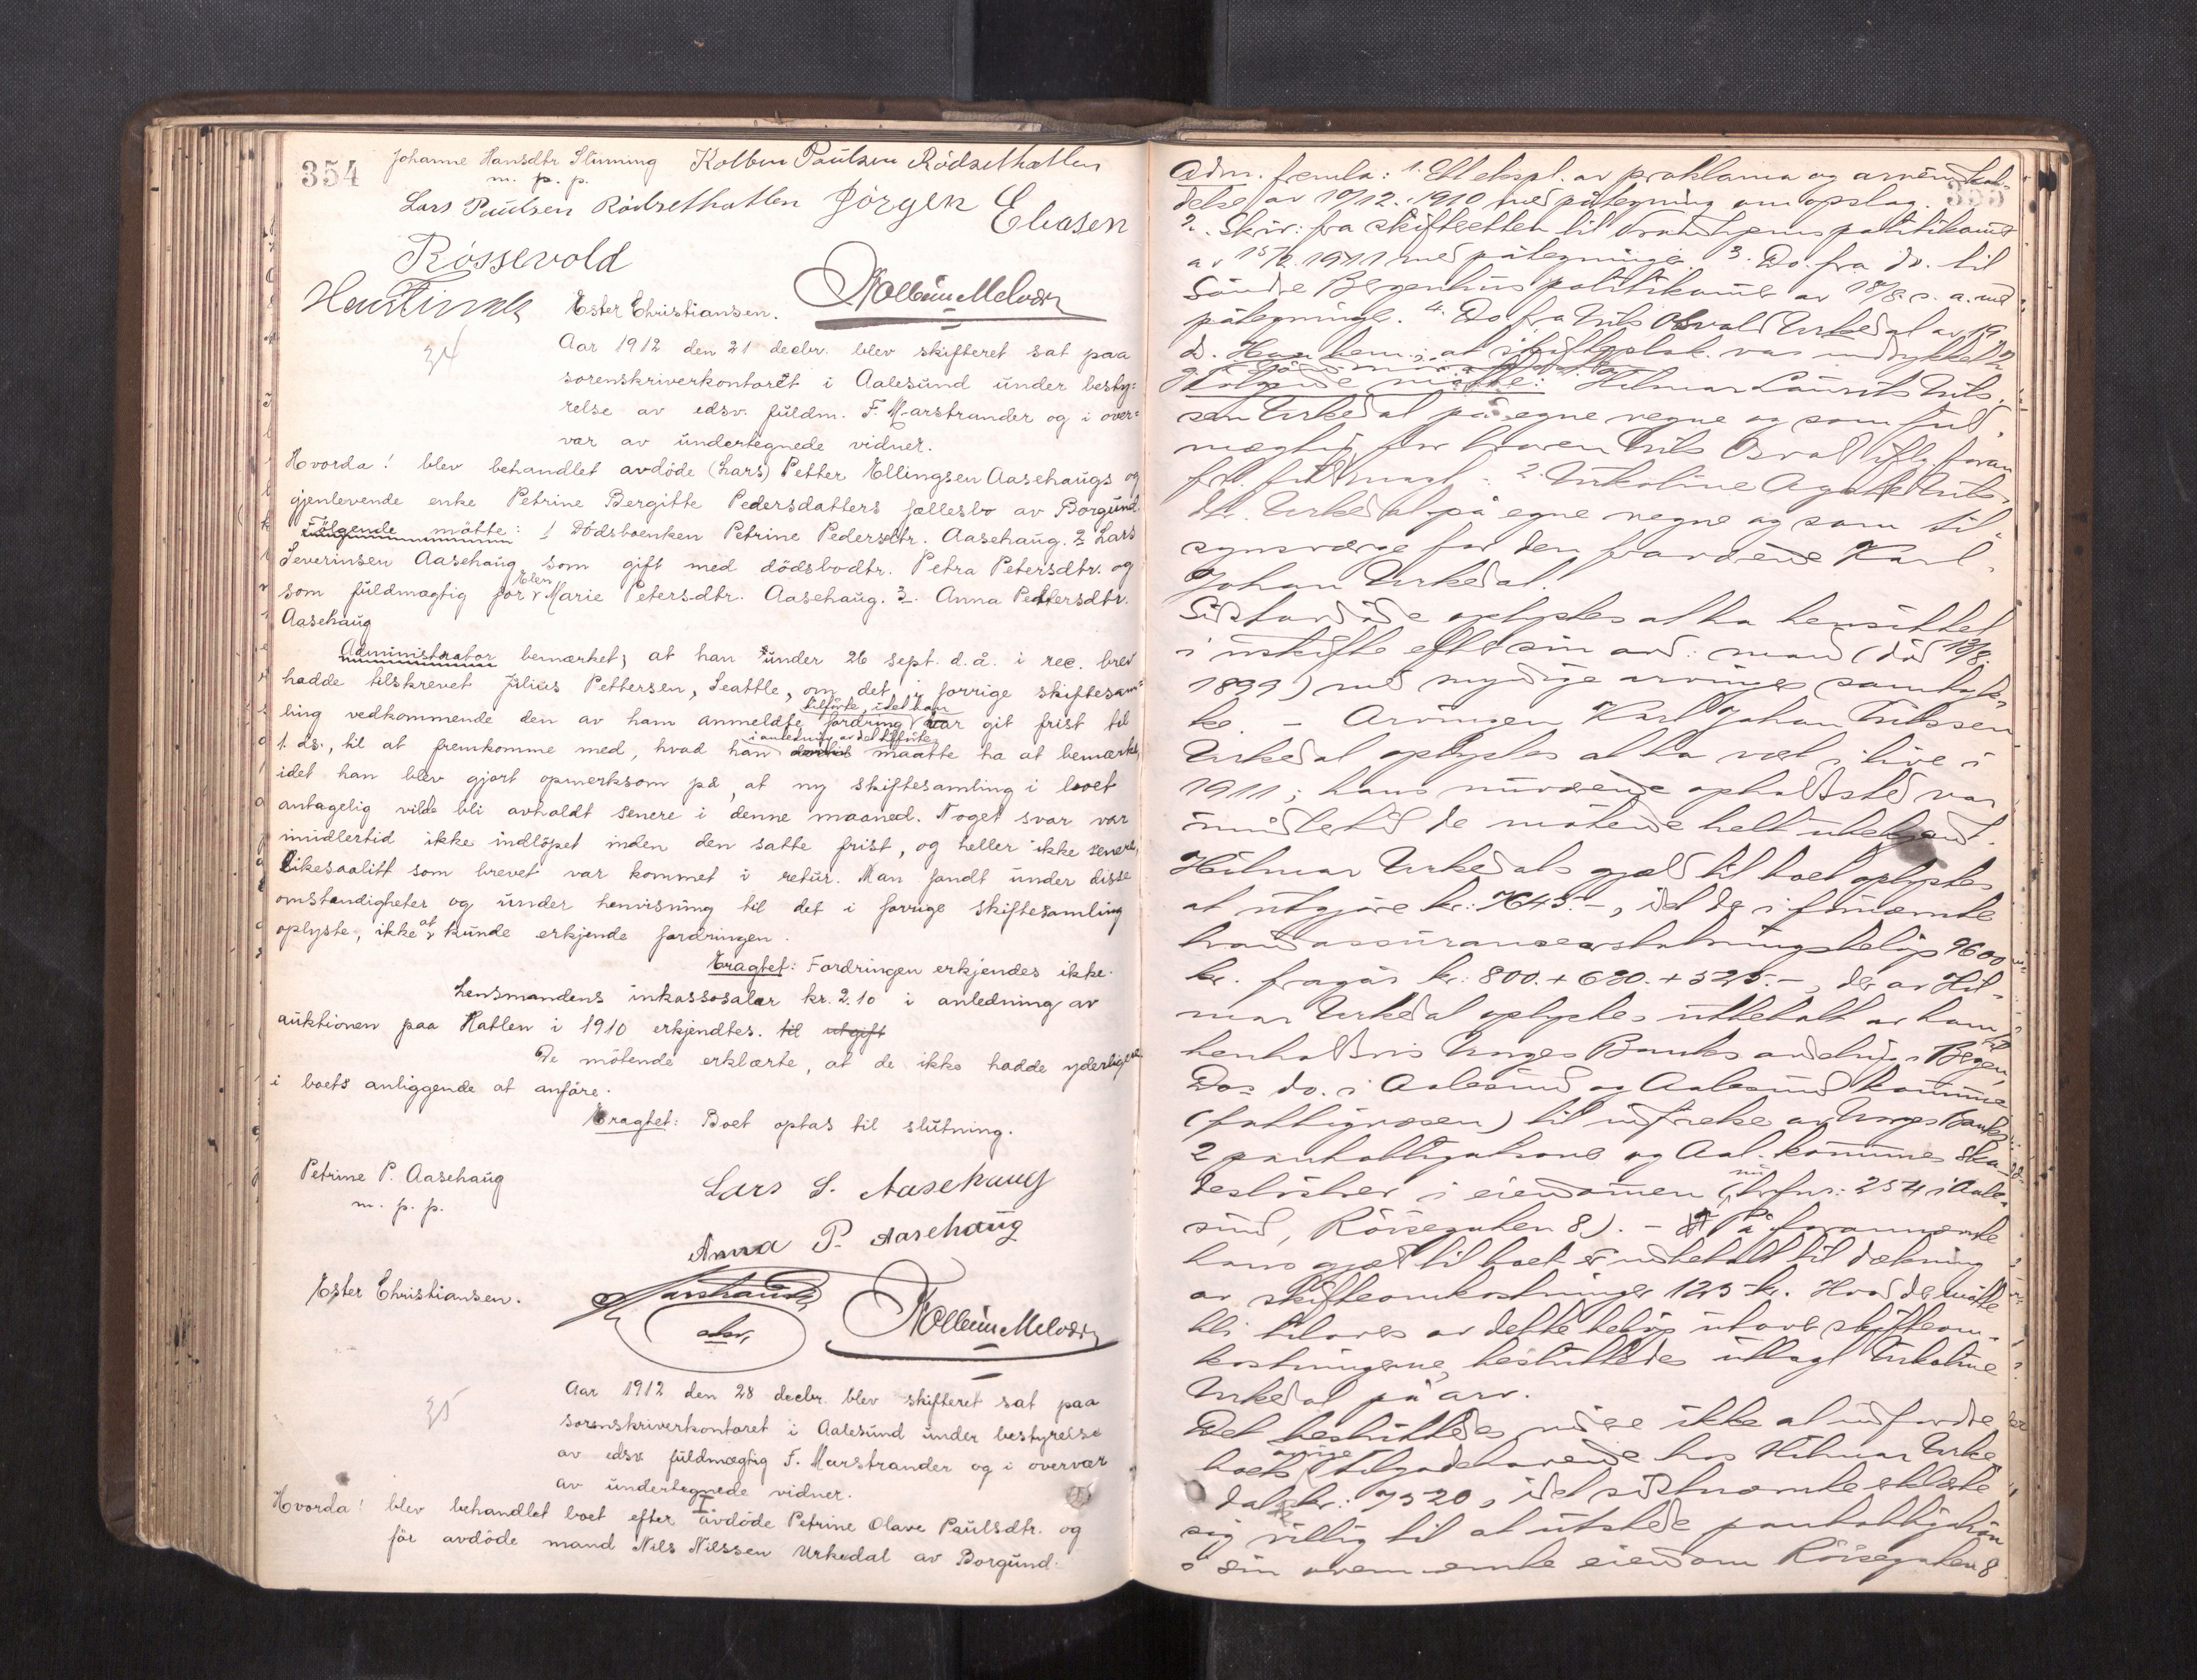 354
Johanne Hansdtr Slinning Kolben Paulsen Rødsethatlen
m. p. p.
Lars Paulsen Rødsethatlen Jørgen Eliasen
Røssevold
Ester Christiansen.
34
Aar 1912 den 21 decbr. blev skifteret sat paa
sorenskriverkontoret i Aalesund under besty-
relse av edsv. fuldm. F. Marstrander og i over-
vær av undertegnede vidner.
Hvorda! blev behandlet avdöde (Lars) Petter Ellingsen Aasehaugs og
gjenlevende enke Petrine Bergitte Pedersdatters fællesbo av Borgund
Følgende mötte: 1 Dödsboenken Petrine Pedersdtr. Aasehaug. 2 Lars
Severinsen Aasehaug som gift med dödsbodtr. Petra Petersdtr. og
som fuldmægtig for Elen Marie Petersdtr. Aasehaug. 3. Anna Pettersdtr.
Aasehaug
Administrator bemærket, at han under 26 sept. d. å. i rec. brev
hadde tilskrevet Julius Pettersen, Seattle, om det i forrige skiftesam-
ling vedkommende den av ham anmeldte fordring tilførte, idet han var git frist til
1. ds., til at fremkomme med, hvad han i anledning av det tilførte maatte ha at bemærke,
idet han blev gjort opmerksom på, at ny skiftesamling i boet
antagelig vilde bli avholdt senere i denne maaned. Noget svar var
imidlertid ikke indlöpet inden den satte frist, og heller ikke senere,
likesaalitt som brevet var kommet i retur. Man fandt under disse
omstændigheter og under henvisning til det i forrige skiftesamling
oplyste, ikke at kunde erkjende fordringen.
Eragtet: Fordringen erkjendes ikke.
Lensmandens inkassosalær kr. 2.10 i anledning av
auktionen paa Hatlen i 1910 erkjendtes. til utgift
De mötende erklærte, at de ikke hadde yderligere
i boets anliggende at anföre.
Eragtet: Boet optas til slutning.
Petrine P. Aasehaug
m. p. p.
Lars S. Aasehaug
Anna P. Aasehaug
Ester Christiansen.
Marstrander
edsv.
35
Aar 1912 den 28 decbr. blev skifteret sat paa
sorenskriverkontoret i Aalesund under bestyrelse
av edsv. fuldmægtig F. Marstrander og i overvær
av undertegnede vidner.
I.
Hvorda! blev behandlet boet efter avdöde Petrine Olave Paulsdtr. og
för avdöde mand Nils Nilssen Urkedal av Borgund.
355
Adm. fremla: 1. Ett ekspl. av proklama og arveindkal-
delse av 10/12. 1910 med påtegning om opslag.
2. Skriv. fra skifteretten til Trondhjems politikamer
av 15/2 1911 med påtegninger. 3. Do. fra do. til
Søndre Bergenhus politikamer av 18/8. s. a. med
påtegninger. 4. Do fra Nils Osvald Urkedal av 19
Følgende møtte: Hilmar Laurits Nils-
sen Urkedal på egne vegne og som ful-
mægtig for broren Nils Osvald ifg. frem-
lagt fuldmagt. 2. Nikoline Agate Nils-
dtr. Urkedal på egne vegne og som til-
synsverge for den fraværende Karl
Johan Urkedal.
Sidstavdöde oplystes at ha hensittet
i uskifte efter sin avd. mand (död 13/8.
1899) med myndige arvinger samtyk-
ke. - Arvingen Karl Johan Nilssen
Urkedal oplystes at ha vært i live i
1911; hans nuværende opholdssted var
imidlertid de mötende helt ubekjendt.
Hilmar Urkedals gjæld til boet oplystes
at utgjöre kr. 7645.-, idet der i forannævnte
brandassuranceerstatningsbelöp 9600
kr. fragår kr. 800. + 630. + 525.-, der av Hil-
mar Urkedal oplystes utbetalt av ham til
henholdsvis Norges Banks avdeling i Bergen,
Do= do. i Aalesund og Aalesunds kommune
(fattigvæsen) til indfrielse av Norges Banks
2 pantobligationer og Aal. kommunes ska-
deslösbrev i eiendommen (nu br.nr. 254 i Aale-
sund, Röisegaten 8). - På forannævnte
hans gjæld til boet er indbetalt til dækning
av skifteomkostninger 125 kr. Hvad der måtte
bli tilovers av dette belöp utover skifteom-
kostningerne, besluttedes utlagt Nikoline
Urkedal på arv.
Det besluttedes videre ikke at indfordre
boets övrige tilgodehavende hos Hilmar Urke-
dal kr. 7520, idet sidstnævnte erklærte
sig villig til at utstede pantobligation
i sin ovennævnte eiendom Röisegaten 8